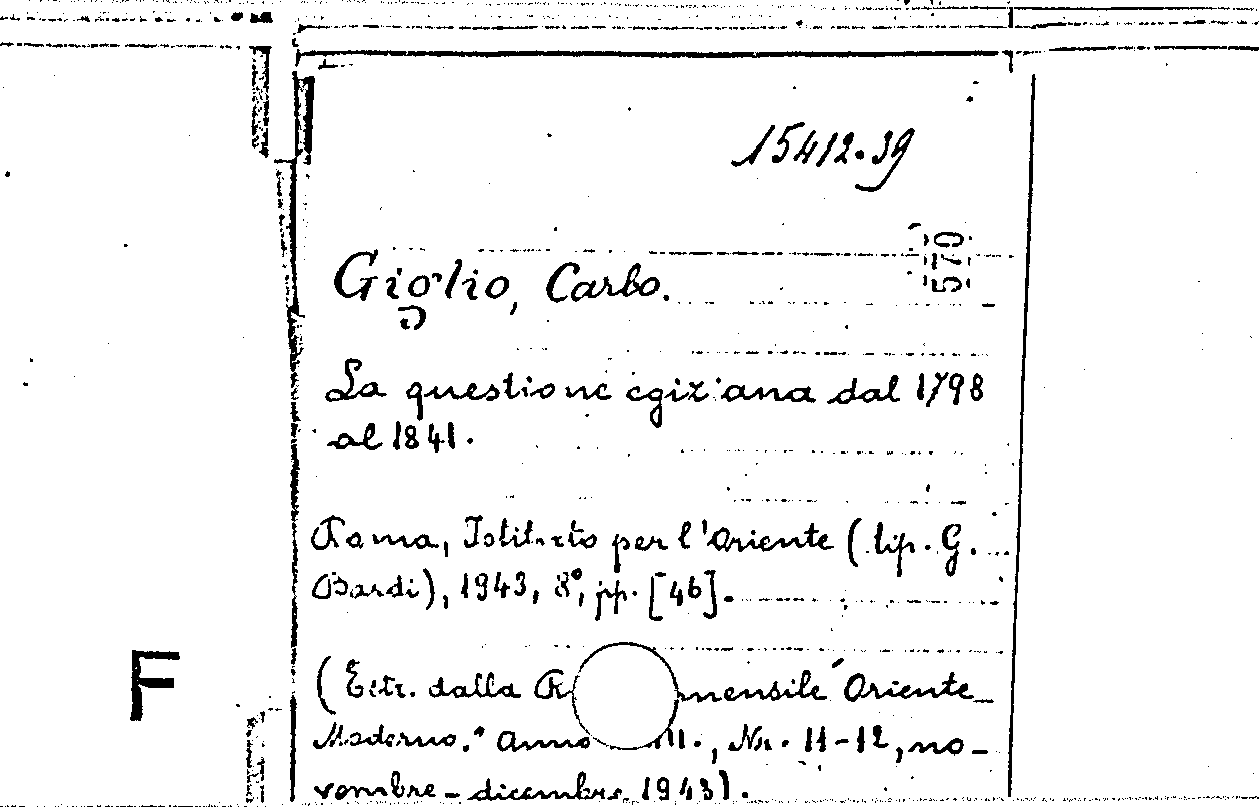 15412.39
570
Giglio, Carlo.
La questione egiziana dal 1798
al 1841.
Roma, Istituto per l'Oriente (tip. G.
Bardi), 1943, 8°, pp. [46].
F
(Estr. dalla mensile "Oriente
Moderno." Anno , Nr. 11-12, no-
vembre - dicembre 1943).